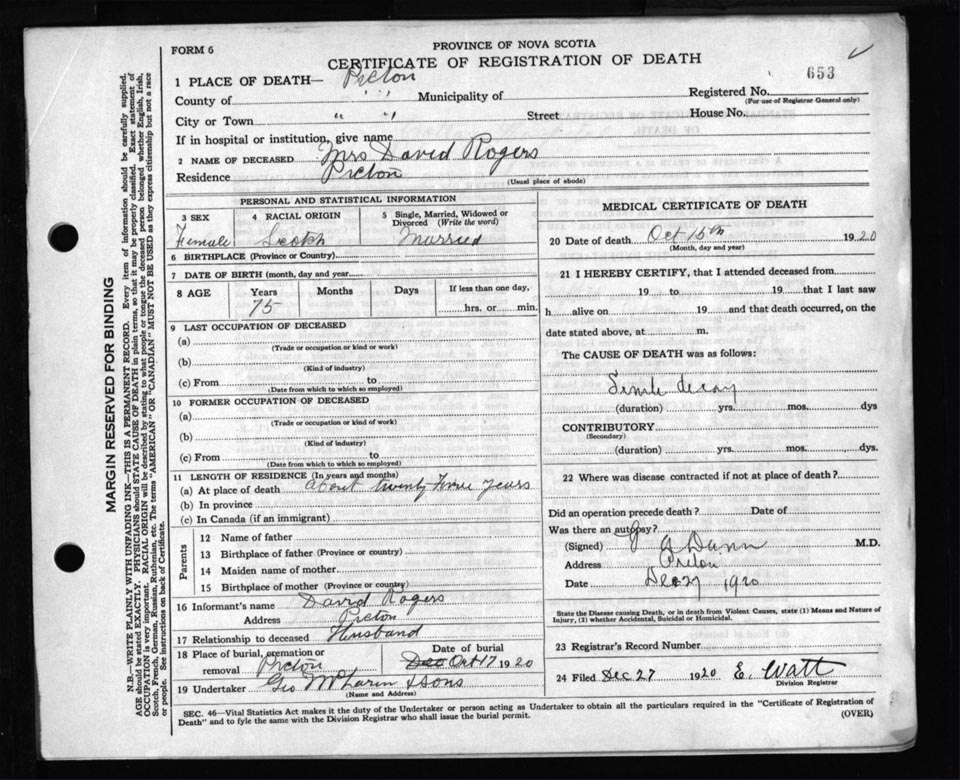 FORM 6
PROVINCE OF NOVA SCOTIA
CERTIFICATE OF REGISTRATION OF DEATH
653
1 PLACE OF DEATH— Pictou
County of " " Municipality of Registered No.
(For use of Registrar General only)
City or Town " " Street House No.
If in hospital or institution, give name
2 NAME OF DECEASED Mrs David Rogers
Residence Pictou
(Usual place of abode)
PERSONAL AND STATISTICAL INFORMATION
3 SEX 4 RACIAL ORIGIN 5 Single, Married, Widowed or Divorced (Write the word)
Female Scotch Married
6 BIRTHPLACE (Province or Country)
7 DATE OF BIRTH (month, day and year)
8 AGE Years Months Days If less than one day,
75 hrs. or min.
9 LAST OCCUPATION OF DECEASED
(a)
(Trade or occupation or kind or work)
(b)
(Kind of industry)
(c) From to
(Date from which to which so employed)
10 FORMER OCCUPATION OF DECEASED
(a)
(Trade or occupation or kind of work)
(b)
(Kind of industry)
(c) From to
(Date from which to which so employed)
11 LENGTH OF RESIDENCE (In years and months)
(a) At place of death about twenty years
(b) In province
(c) In Canada (if an immigrant)
Parents
12 Name of father
13 Birthplace of father (Province or country)
14 Maiden name of mother
15 Birthplace of mother (Province or country)
16 Informant's name David Rogers
Address Pictou
17 Relationship to deceased Husband
18 Place of burial, cremation or removal Pictou
Date of burial
Dec Oct 17 1920
19 Undertaker Geo & Sons
(Name and Address)
MEDICAL CERTIFICATE OF DEATH
20 Date of death Oct 15th 1920
(Month, day and year)
21 I HEREBY CERTIFY, that I attended deceased from
19 to 19 that I last saw
h alive on 19 and that death occurred, on the
date stated above, at m.
The CAUSE OF DEATH was as follows:
Senile decay
(duration) yrs. mos. dys
CONTRIBUTORY
(Secondary)
(duration) yrs. mos. dys.
22 Where was disease contracted if not at place of death?
Did an operation precede death? Date of
Was there an autopsy?
(Signed) J A Dunn M.D.
Address Pictou
Date Dec 27 1920
State the Disease causing Death, or in death from Violent Causes, state (1) Means and Nature of
Injury, (2) whether Accidental, Suicidal or Homicidal.
23 Registrar's Record Number
24 Filed Dec 27 1920 E. Watt
Division Registrar
SEC. 46—Vital Statistics Act makes it the duty of the Undertaker or person acting as Undertaker to obtain all the particulars required in the "Certificate of Registration of
Death" and to fyle the same with the Division Registrar who shall issue the burial permit. (OVER)
MARGIN RESERVED FOR BINDING
N.B.—WRITE PLAINLY WITH UNFADING INK—THIS IS A PERMANENT RECORD. Every item of information should be carefully supplied.
AGE should be stated EXACTLY. PHYSICIANS should STATE CAUSE OF DEATH in plain terms, so that it may be properly classified. Exact statement of
OCCUPATION is very important. RACIAL ORIGIN will be described by stating to what people or tongue the deceased person belonged whether English, Irish,
Scotch, French, German, Russian, Ruthenian, etc. The terms "AMERICAN" OR "CANADIAN" MUST NOT BE USED as they express citizenship but not a race
or people. See instructions on back of Certificate.